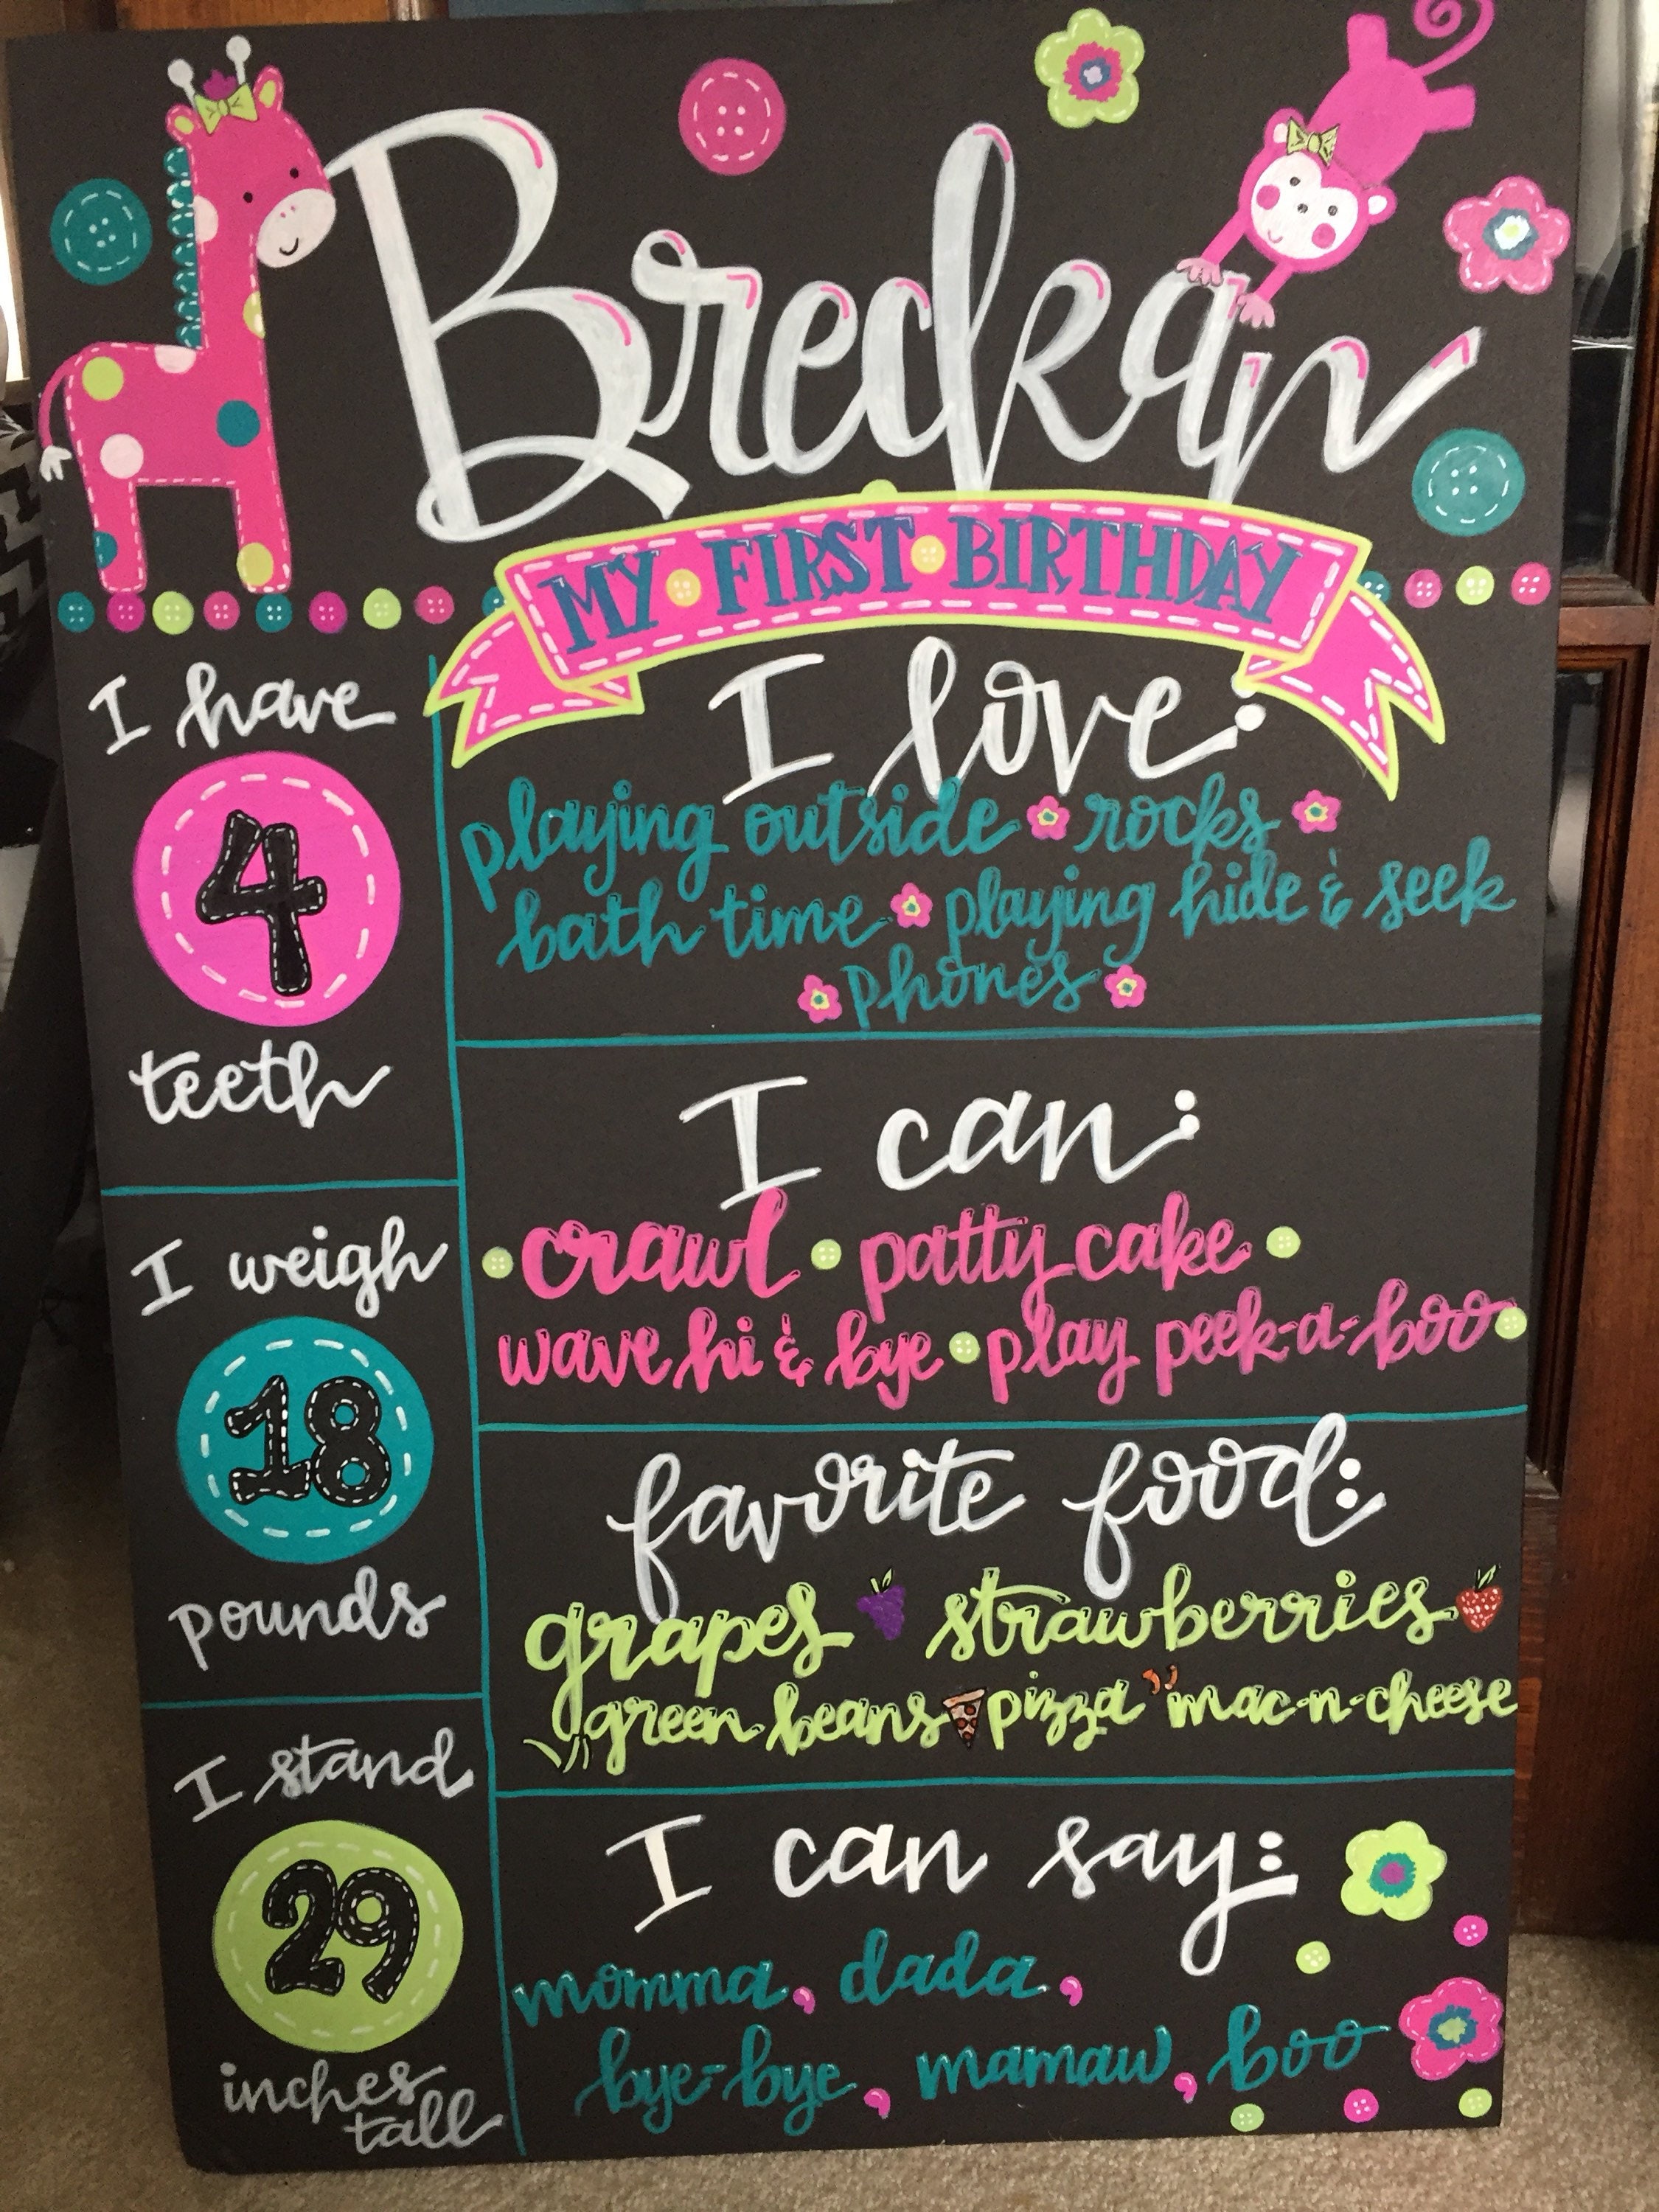 Breckan
MY FIRST BIRTHDAY
I have
4
teeth
I weigh
18
pounds
I stand
29
inches
tall
I love:
playing outside rocks
bath time playing hide & seek
phones
I can:
crawl patty cake
wave hi & bye play peek-a-boo
favorite food:
grapes strawberries
green beans pizza mac-n-cheese
I can say:
momma, dada,
bye-bye, mamaw, boo